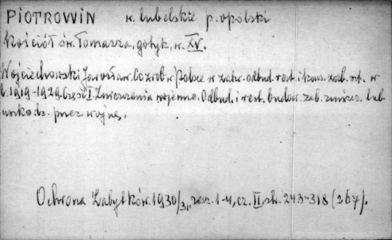 PIOTROWIN w. lubelskie p. opolski
Kościół św. Tomasza, gotyk, w. XV.
Wojciechowski Jarosław. Co zrob. w Polsce w zakr. odbud. rest. i kons. zab. arch. w
l. 1919-1929. Część I. Zniszczenia wojenne. Odbud. i rest. budow. zab. zniszcz. lub
uszkodz. przez wojnę.
Ochrona Zabytków. 1930/31, zesz. 1-4, cz. II, str. 243-318 (267).